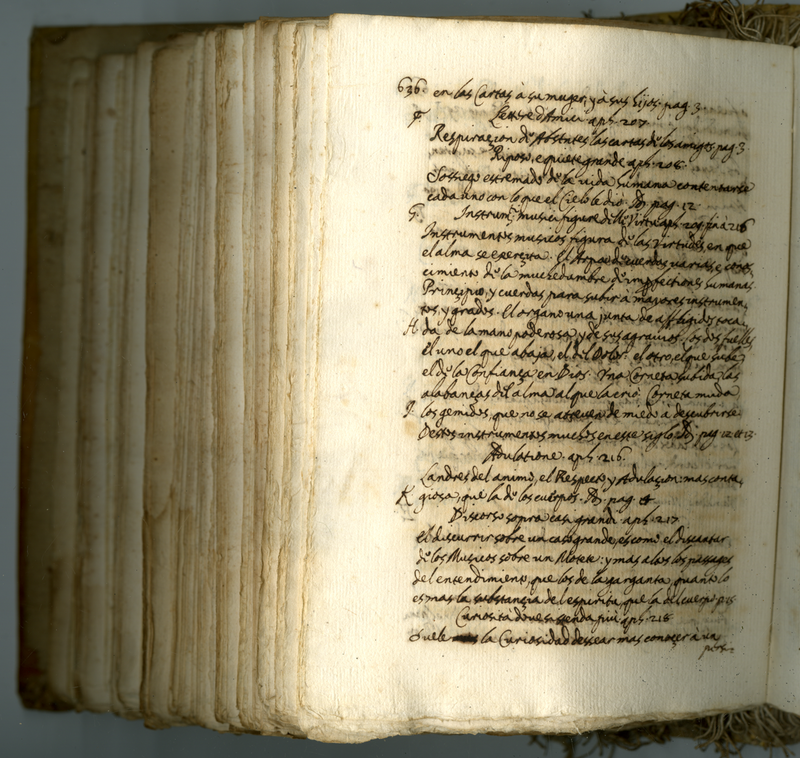 636. en las Cartas à su muger, y à sus hijos. pag. 3.
F Lettere d'Amici aph. 207.
Respiraçion de Absentes las cartas de los amigos pag. 3
Riposo, e quiete grande aph. 208.
Sossiego estremado de la vida humana contentarse
cada uno con lo que el Cielo le dió. pag. 12
G. Instrum.ti musici figure delle Virtu aph. 209 fin à 216
Instrumentos musicos figura de las Virtudes, en que
el alma se exerçita. El Arpa de cuerdas varias, e conos-
cimiento de la muchedumbre de imperfectiones humanas
Principio, y cuerdas para subir à mayores instrumen-
tos, y grados. El organo una junta de affligidos toca-
H. da de la mano poderosa, y de sus agravios. los dos fuelles
El uno el que abaja, el del Dolor. el otro, el que sube
el de la Confiança en Dios. Una Corneta subida las
alabanças del alma al que la crió. Corneta muda
I. los gemidos, que no se atreven de miedo à descubrirse.
Destos instrumentos muchos en este siglo pag. 12 et 13
Adulatione. aph. 216.
Landres del animo, el Respecto y Adulaçion: mas conta-
K giosa, que la de los cuerpos. pag.
Discorso sopra casi grandi aph. 217
El discurrir sobre un caso grande, es como el discantar
de los Musicos sobre un Motete: y mas altos los passages
del entendimiento, que los de la garganta, quanto lo
es mas la substançia del espiritu, que la del cuerpo
Curiosità dove aph. 218
Suele la Curiosidad dessear mas conoçer à una
pers-